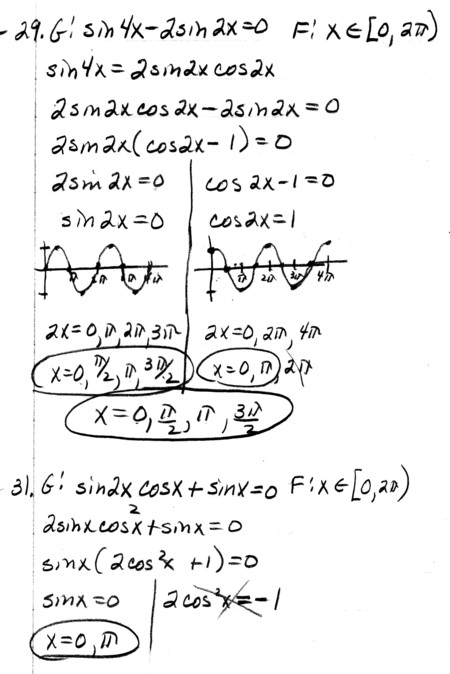 29. G: sin 4x - 2 sin 2x = 0 F: x ∈ [0, 2π)
sin 4x = 2 sin 2x cos 2x
2 sin 2x cos 2x - 2 sin 2x = 0
2 sin 2x (cos 2x - 1) = 0
2 sin 2x = 0 | cos 2x - 1 = 0
sin 2x = 0 | cos 2x = 1
π 2π 3π 4π | π 2π 3π 4π
2x = 0, π, 2π, 3π | 2x = 0, 2π, 4π
x = 0, π/2, π, 3π/2 | x = 0, π, 2π
x = 0, π/2, π, 3π/2
31. G: sin 2x cos x + sin x = 0 F: x ∈ [0, 2π)
2 sin x cos²x + sin x = 0
sin x (2 cos²x + 1) = 0
sin x = 0 | 2 cos²x = -1
x = 0, π